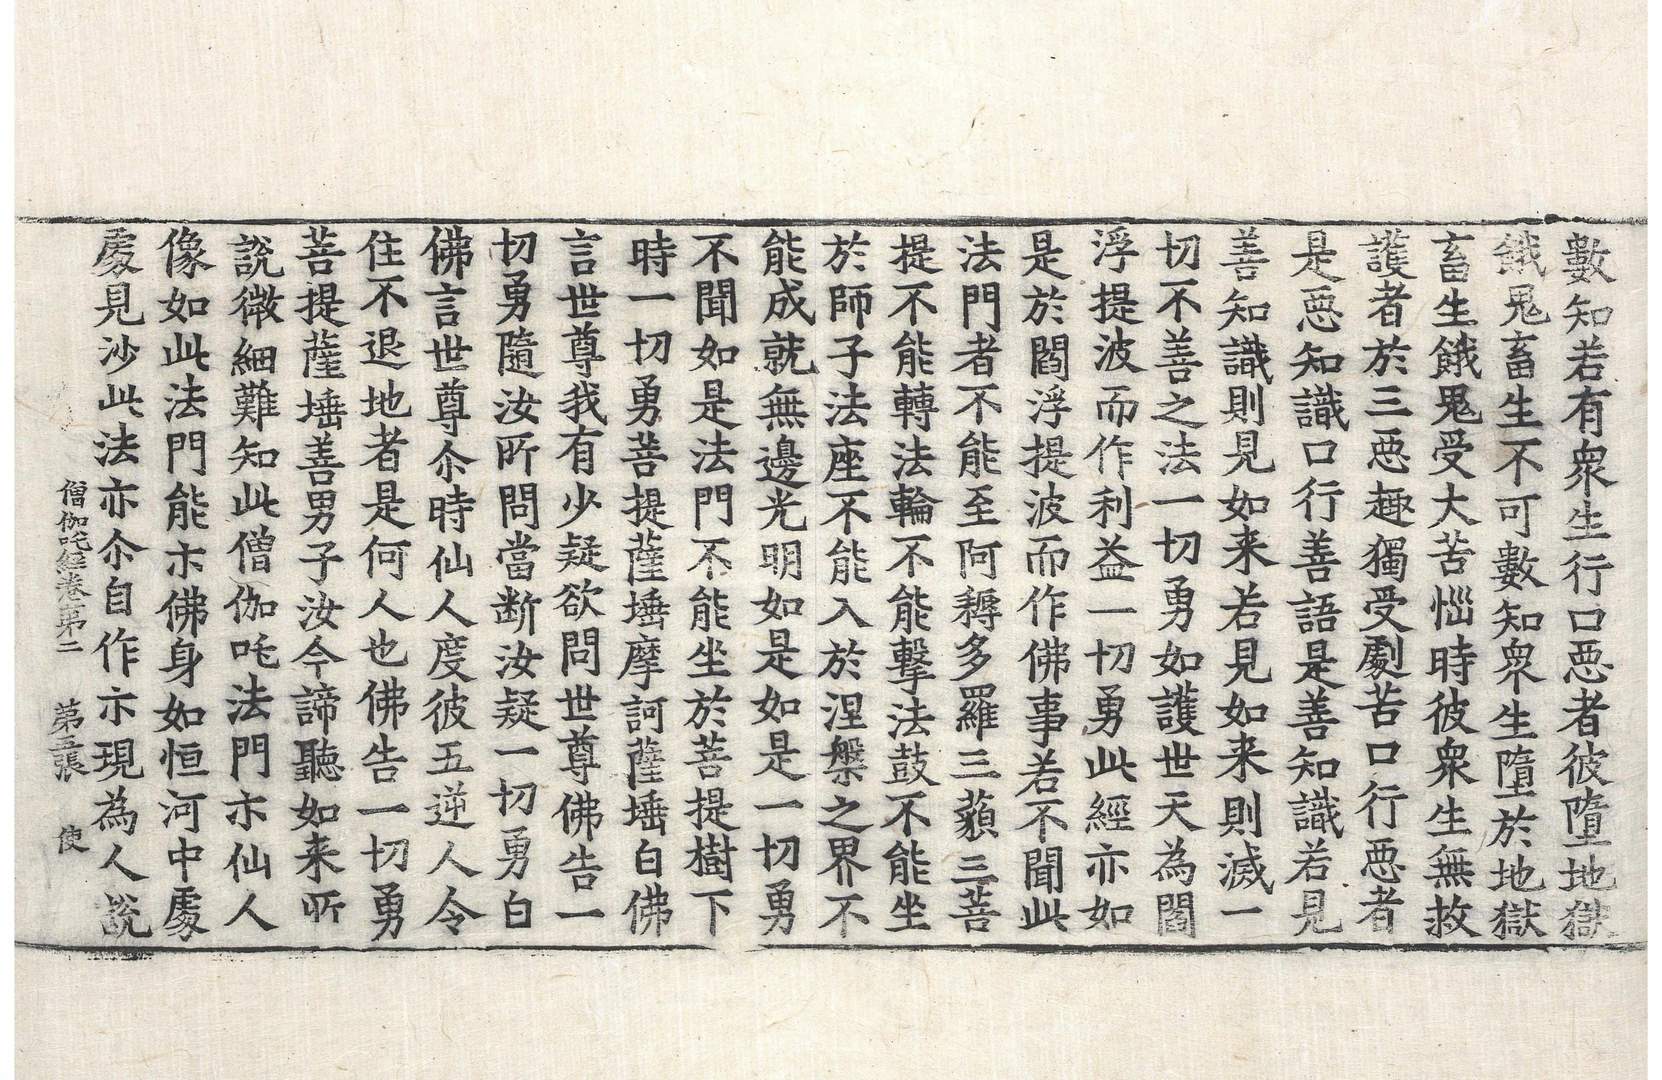 數知若有衆生行口悪者彼墮地獄
餓鬼畜生不可數知衆生墮於地獄
畜生餓鬼受大苦惱時彼衆生無救
護者於三悪趣獨受劇苦口行悪者
是悪知識口行善語是善知識若見
善知識則見如来若見如来則滅一
切不善之法一切勇如護世天為閻
浮提波而作利益一切勇此經亦如
是於閻浮提波而作佛事若不聞此
法門者不能至阿耨多羅三藐三菩
提不能轉法輪不能擊法鼓不能坐
於師子法座不能入於涅槃之界不
能成就無邊光明如是如是一切勇
不聞如是法門不能坐於菩提樹下
時一切勇菩提薩埵摩訶薩埵白佛
言世尊我有少疑欲問世尊佛告一
切勇隨汝所問當断汝疑一切勇白
佛言世尊尒時仙人度彼五逆人令
住不退地者是何人也佛告一切勇
菩提薩埵善男子汝今諦聽如来所
說微細難知此僧伽吒法門示仙人
像如此法門能示佛身如恒河中處
處見沙此法亦尒自作示現為人說
僧伽吒經卷第二 第五張 使